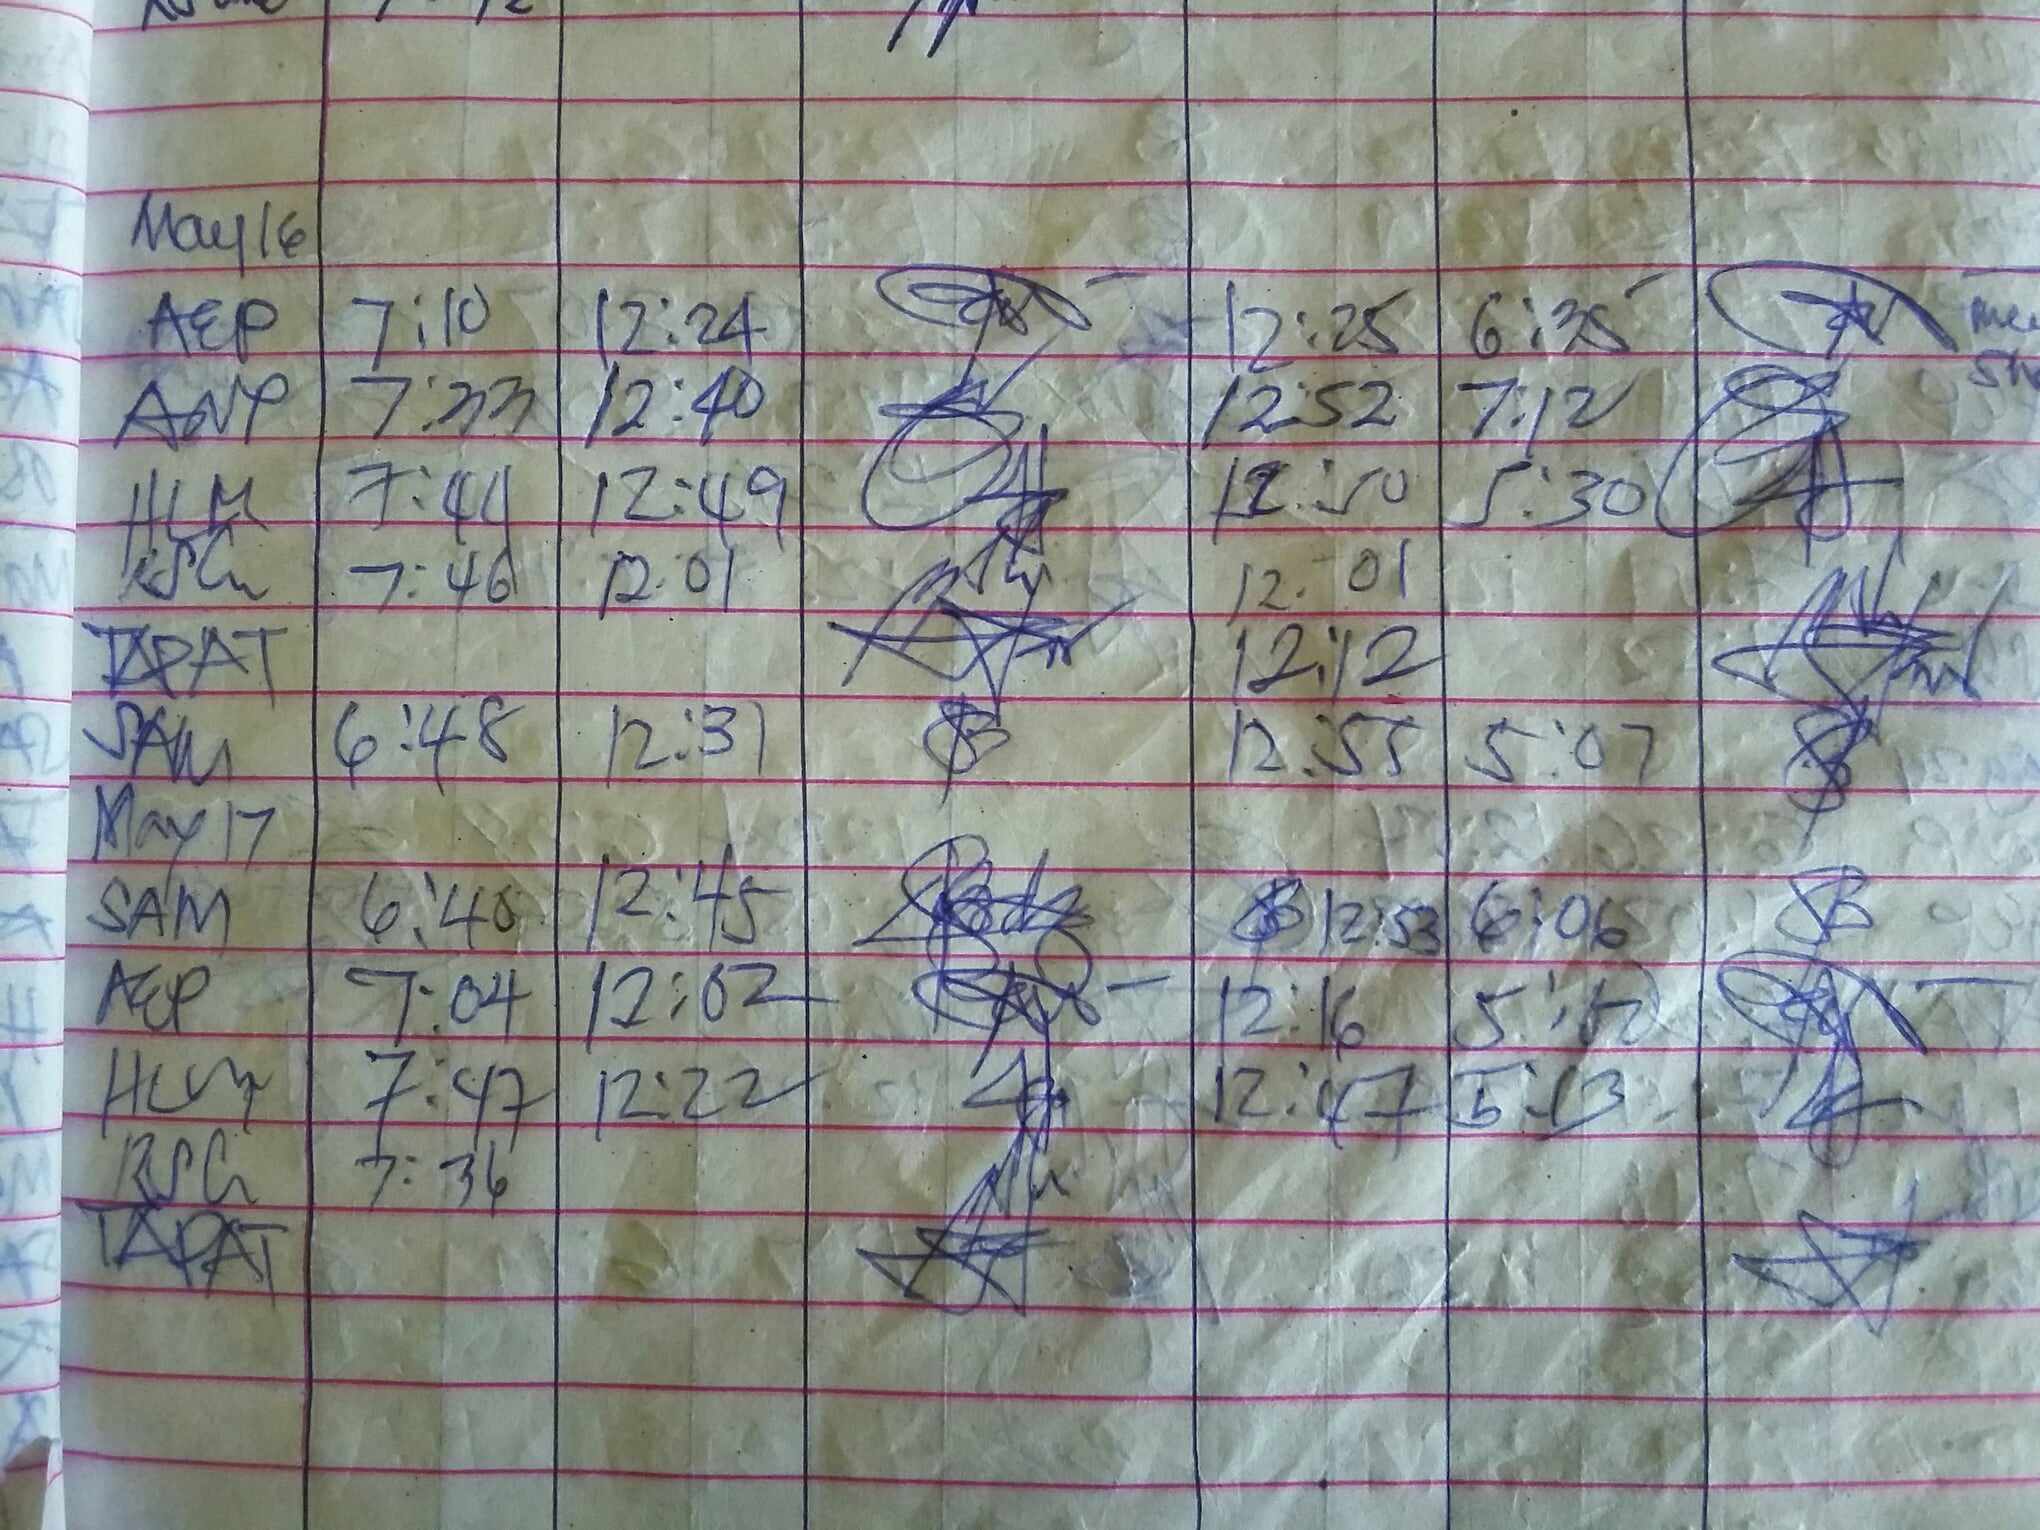 May 16
AEP 7:10 12:24 12:25 6:35
ANP 7:33 12:40 12:52 7:12
HLM 7:44 12:49 12:50 5:30
RSG 7:46 12:01 12:01
TAPAT 12:12
SAM 6:48 12:31 12:55 5:07
May 17
SAM 6:40 12:45 12:53 6:06
AEP 7:04 12:02 12:16
HLM 7:47 12:22 12:47 5:13
RSG 7:36
TAPAT